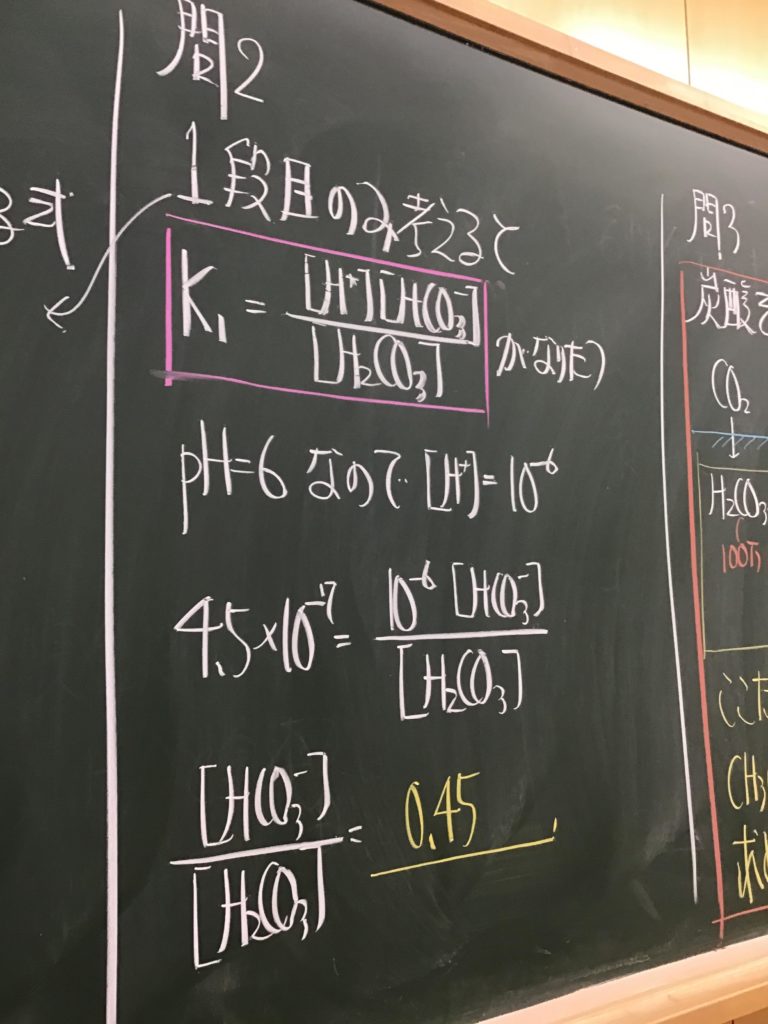 る式
問2
1段目のみ考えると
K₁ = [H⁺][HCO₃⁻] / [H₂CO₃] がなりたつ
pH=6 なので [H⁺]=10⁻⁶
4.5×10⁻⁷ = 10⁻⁶ [HCO₃⁻] / [H₂CO₃]
[HCO₃⁻] / [H₂CO₃] = 0.45
問3
炭酸
CO₂
↓
H₂CO₃
ここ
CH₃